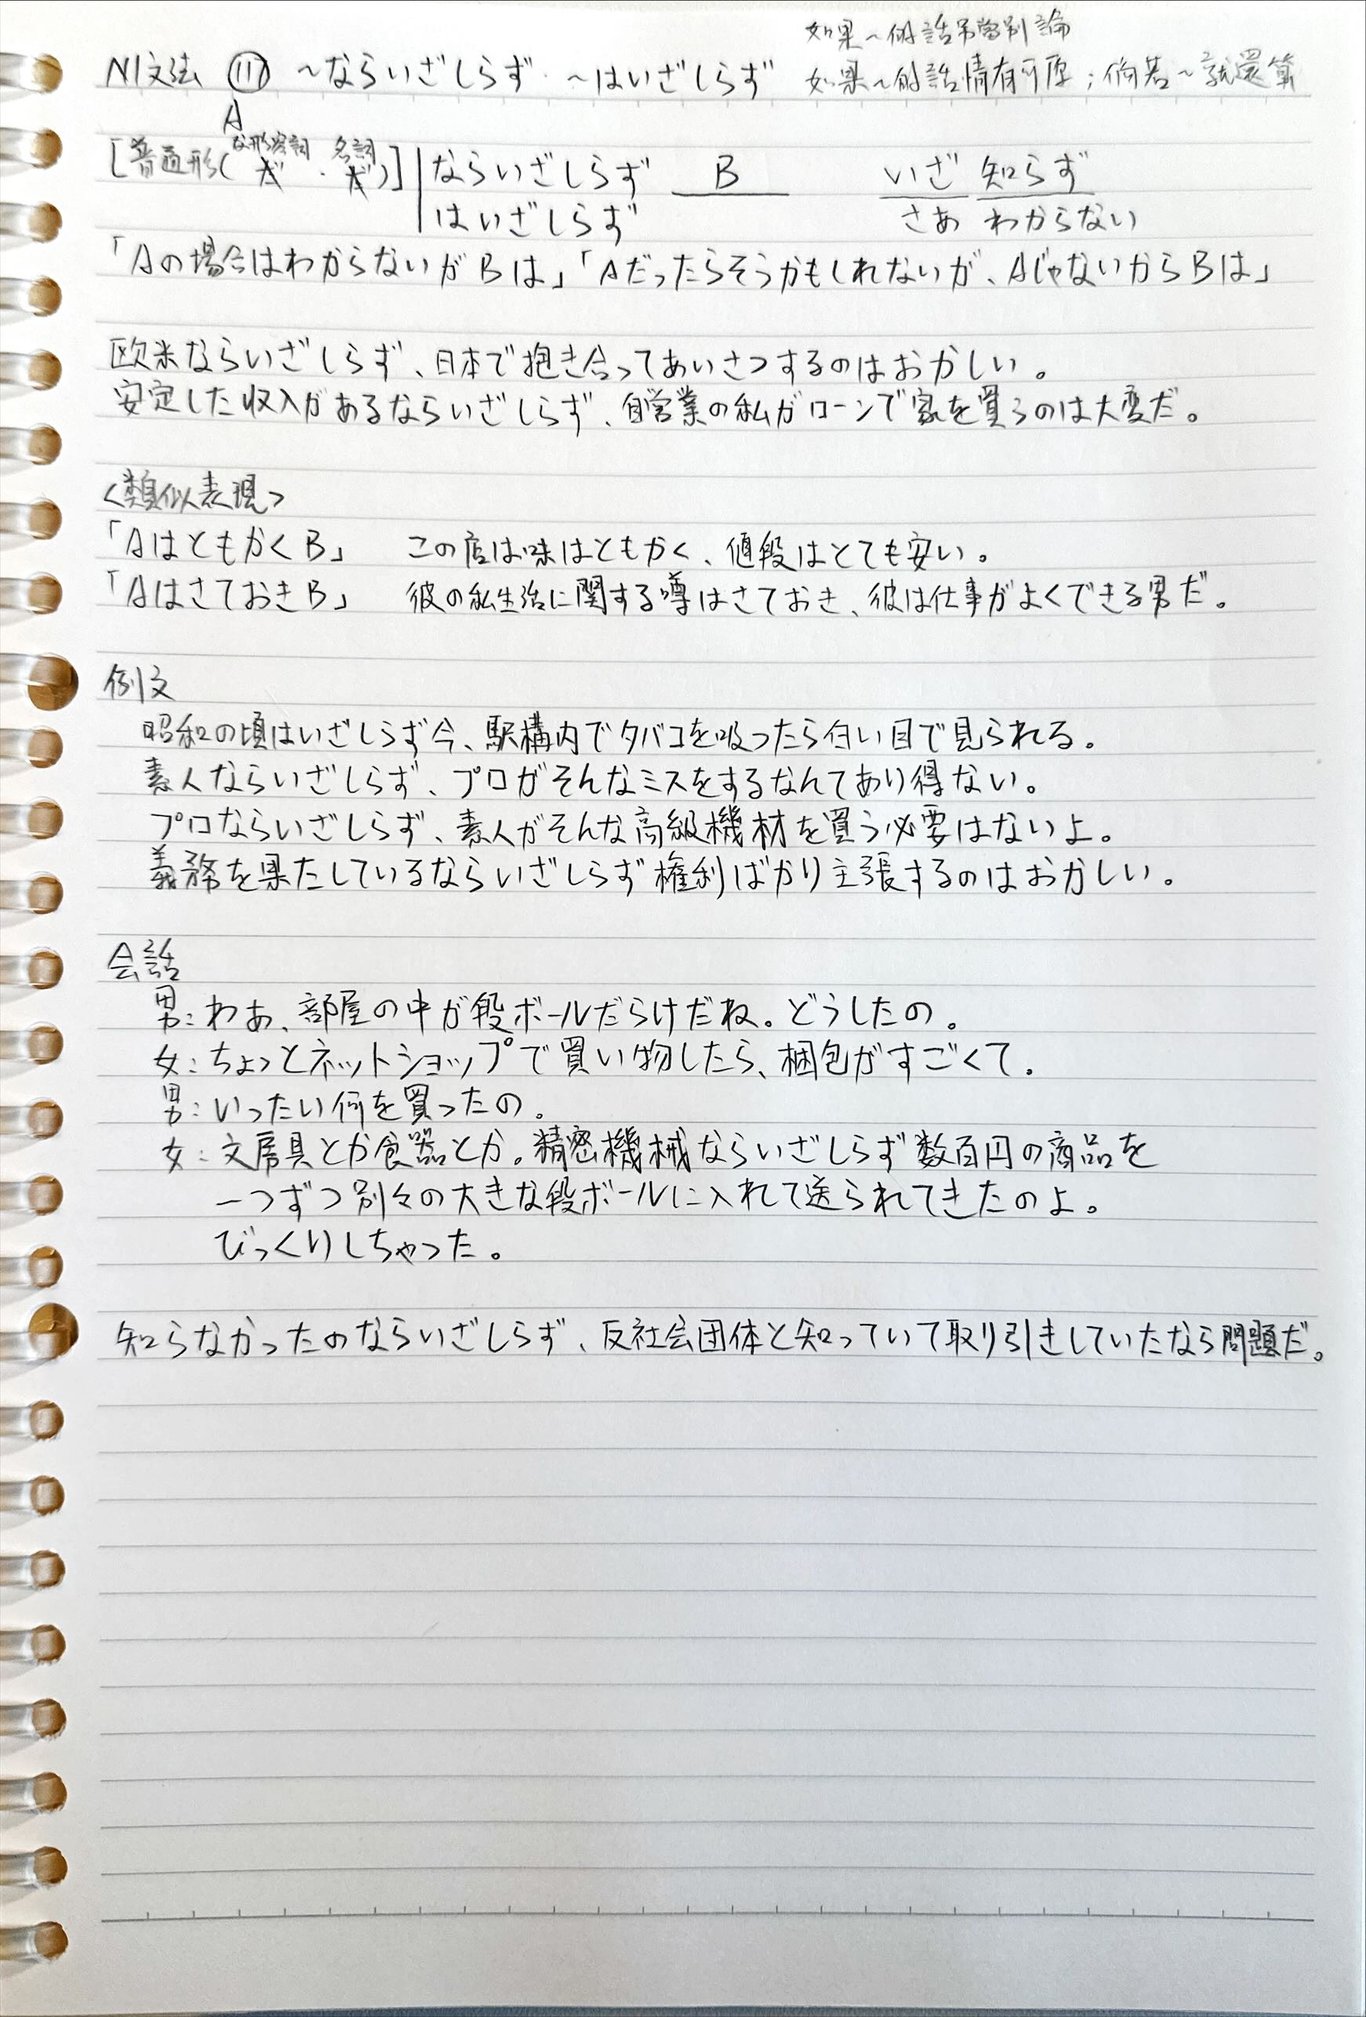 如果~的話另當別論
N1文法 111 ~ならいざしらず・~はいざしらず 如果~的話情有可原；倘若~就還算
A
な形容詞 名詞
[普通形(だ・だ)] ならいざしらず B いざ 知らず
はいざしらず さあ わからない
「Aの場合はわからないがBは」「Aだったらそうかもしれないが、AじゃないからBは」
欧米ならいざしらず、日本で抱き合ってあいさつするのはおかしい。
安定した収入があるならいざしらず、自営業の私がローンで家を買うのは大変だ。
<類似表現>
「AはともかくB」 この店は味はともかく、値段はとても安い。
「AはさておきB」 彼の私生活に関する噂はさておき、彼は仕事がよくできる男だ。
例文
昭和の頃はいざしらず今、駅構内でタバコを吸ったら白い目で見られる。
素人ならいざしらず、プロがそんなミスをするなんてあり得ない。
プロならいざしらず、素人がそんな高級機材を買う必要はないよ。
義務を果たしているならいざしらず権利ばかり主張するのはおかしい。
会話
男：わあ、部屋の中が段ボールだらけだね。どうしたの。
女：ちょっとネットショップで買い物したら、梱包がすごくて。
男：いったい何を買ったの。
女：文房具とか食器とか。精密機械ならいざしらず数百円の商品を
一つずつ別々の大きな段ボールに入れて送られてきたのよ。
びっくりしちゃった。
知らなかったのならいざしらず、反社会団体と知っていて取り引きしていたなら問題だ。